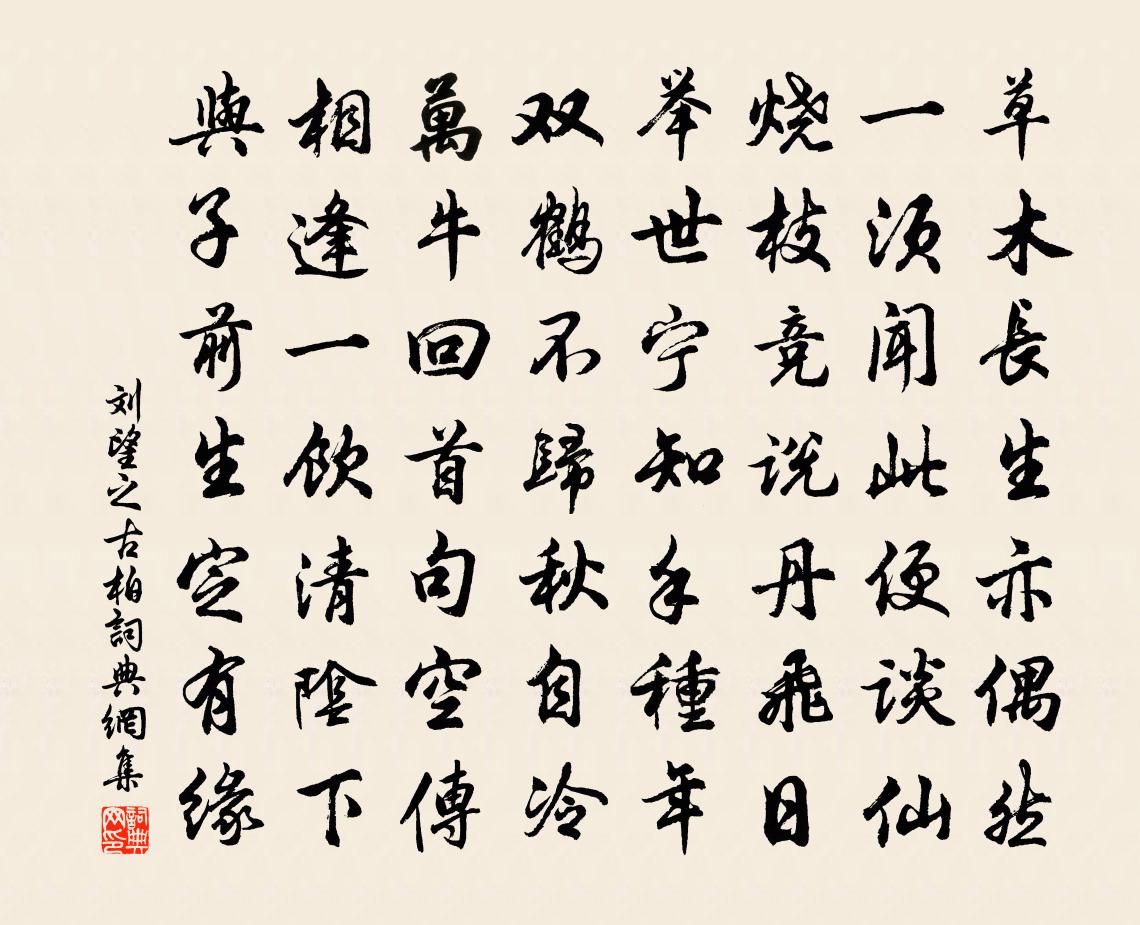 草木長生亦偶然
一须闻此便谈仙
烧枝竞说丹飛日
举世宁知手種年
双鹤不歸秋自冷
萬牛回首句空傳
相逢一飲清陰下
與子前生定有緣
刘望之古柏詞典網集
詞典网印